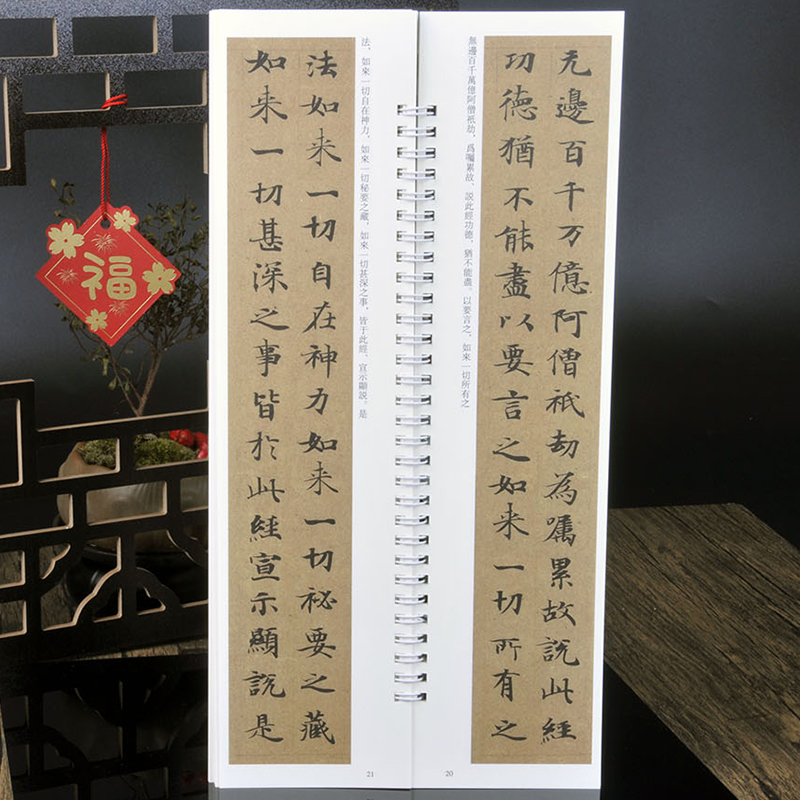 无邊百千万億阿僧祇劫為嘱累故說此經
功德猶不能盡以要言之如来一切所有之
無邊百千萬億阿僧祇劫,爲囑累故,説此經功德,猶不能盡。以要言之,如來一切所有之
20
法、如來一切自在神力、如來一切秘要之藏、如來一切甚深之事,皆于此經、宣示顯説。是
法如来一切自在神力如来一切祕要之藏
如来一切甚深之事皆於此經宣示顯說是
21
福